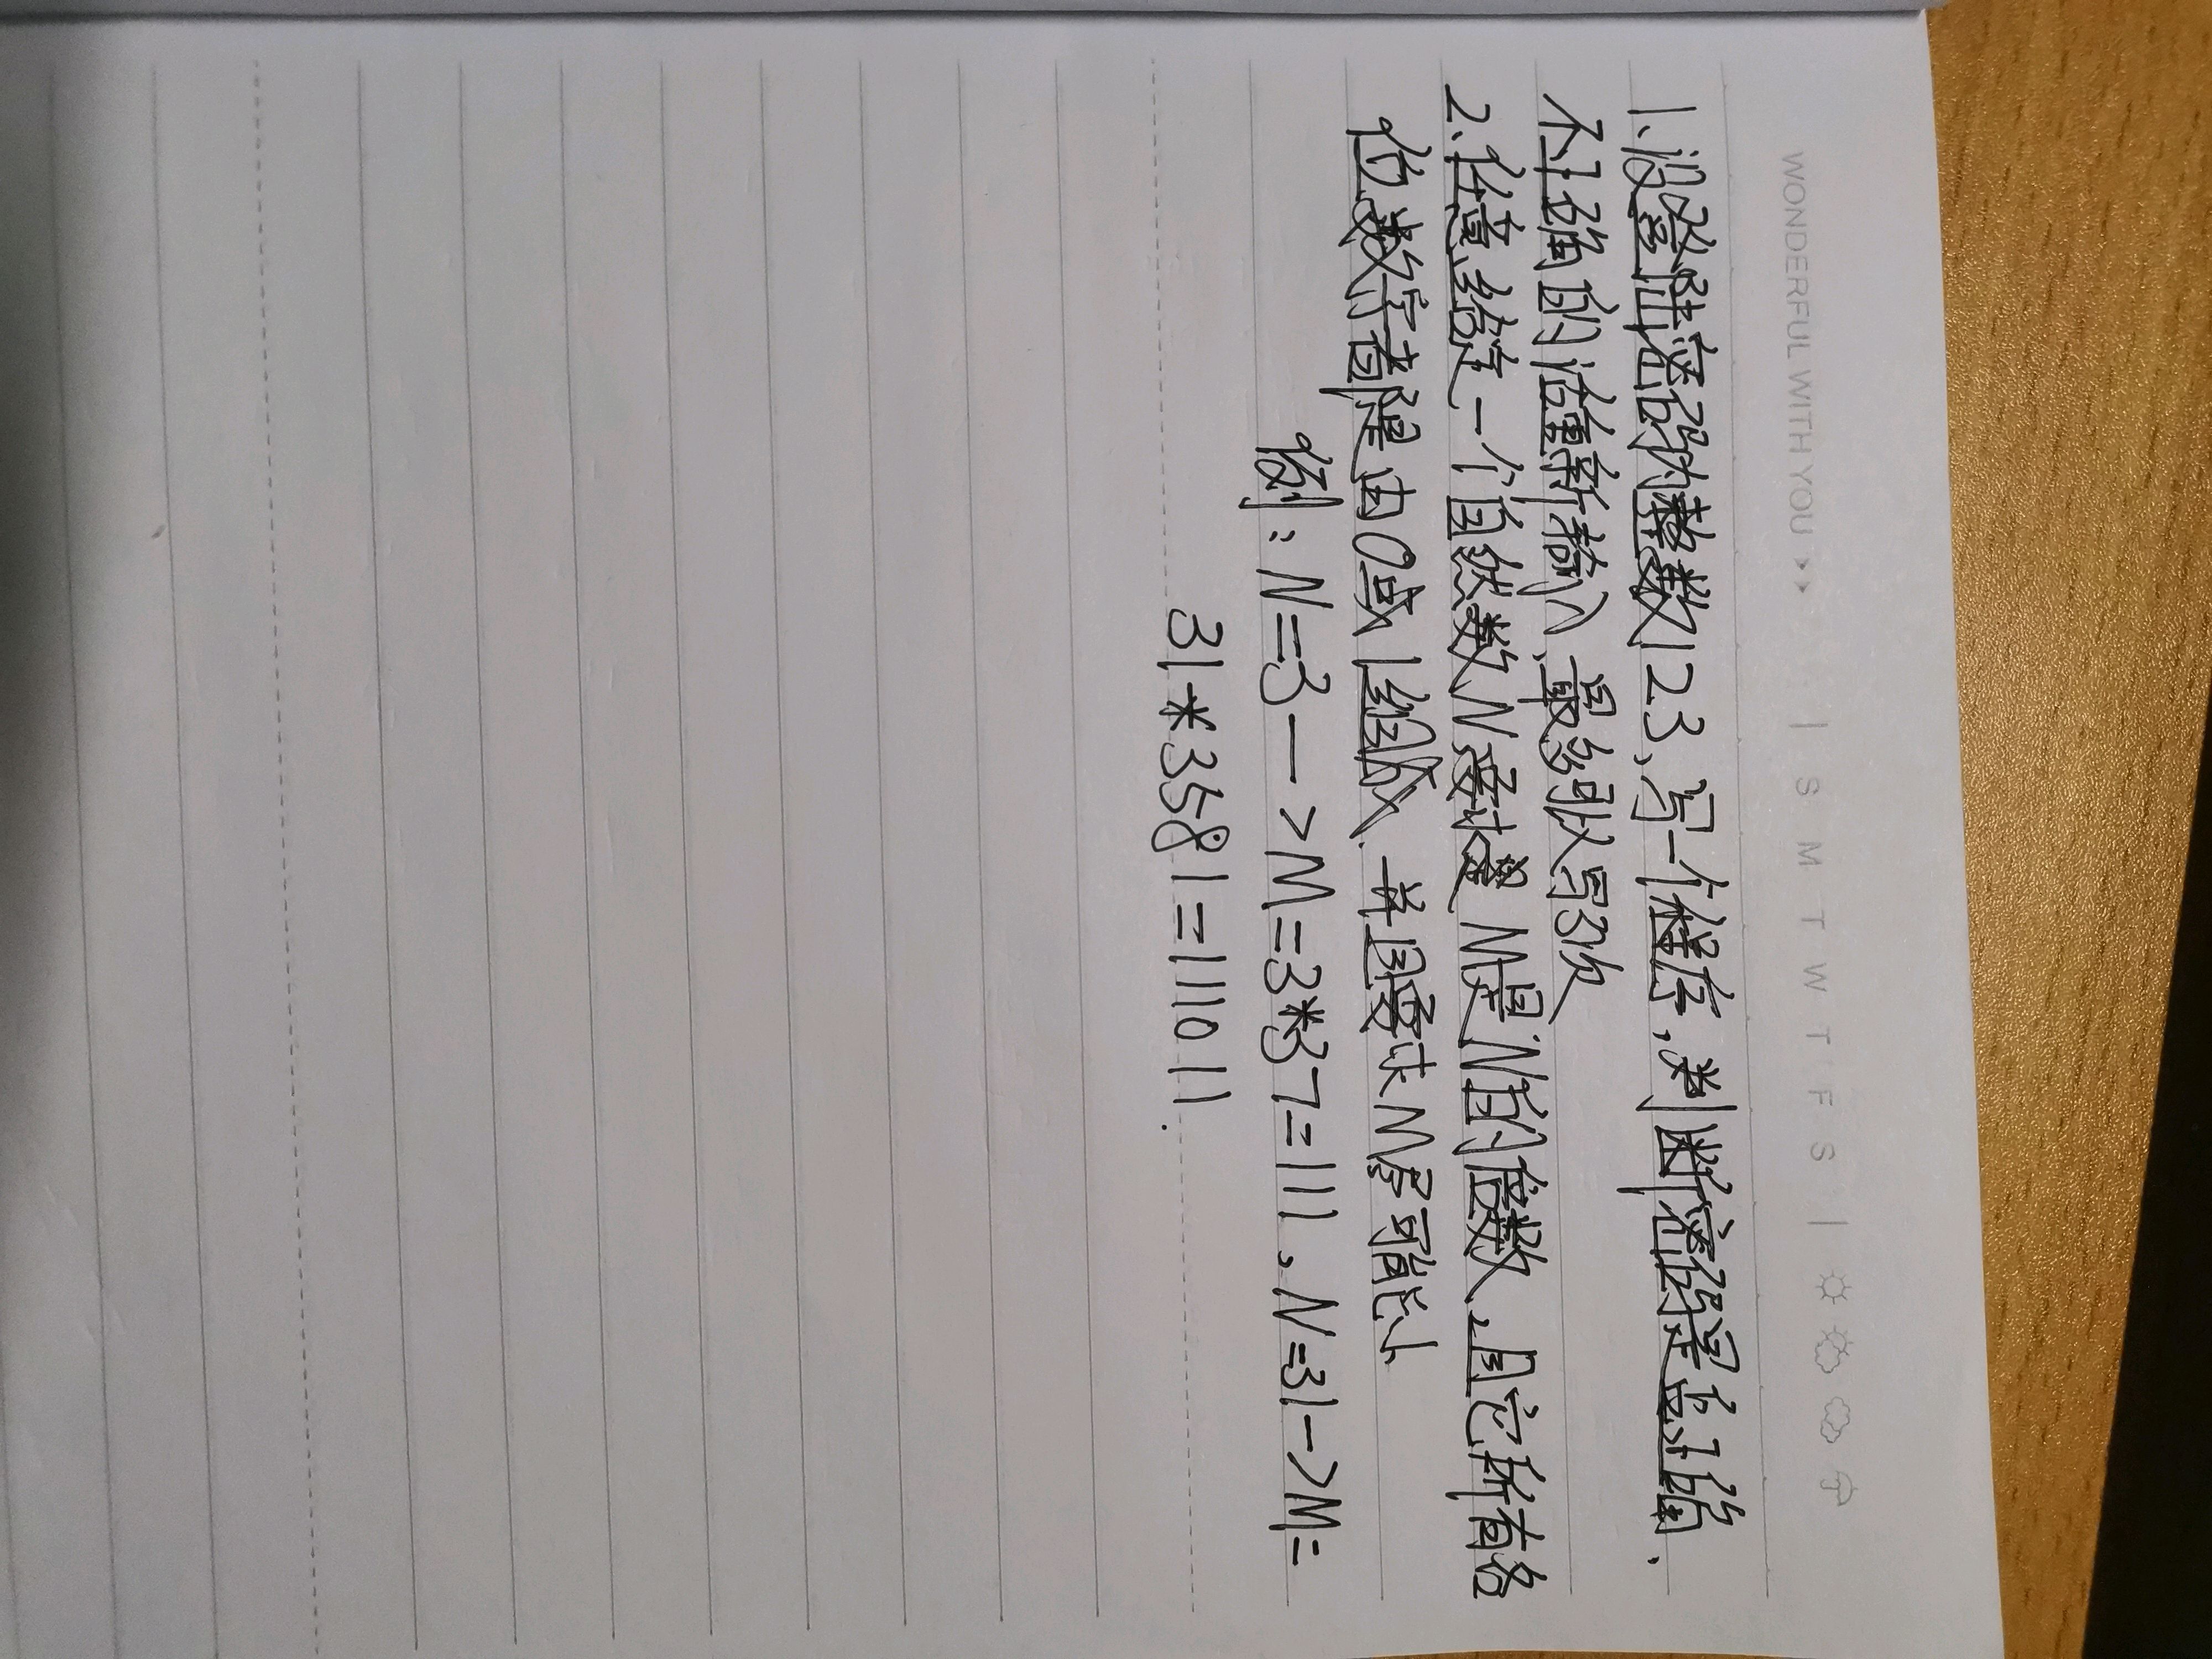 WONDERFUL WITH YOU >> | S M T W T F S |
1、设登陆密码为整数123、写一个程序,判断密码是否正确、
不正确的话重新输入、最多可以写3次
2、任意给定一个自然数N要求是M是N的倍数、且它所有各
位数字都是由0或1组成、并且要求M尽可能小
例:N=3—>M=3*37=111、N=31—>M=
31*3581=111011.